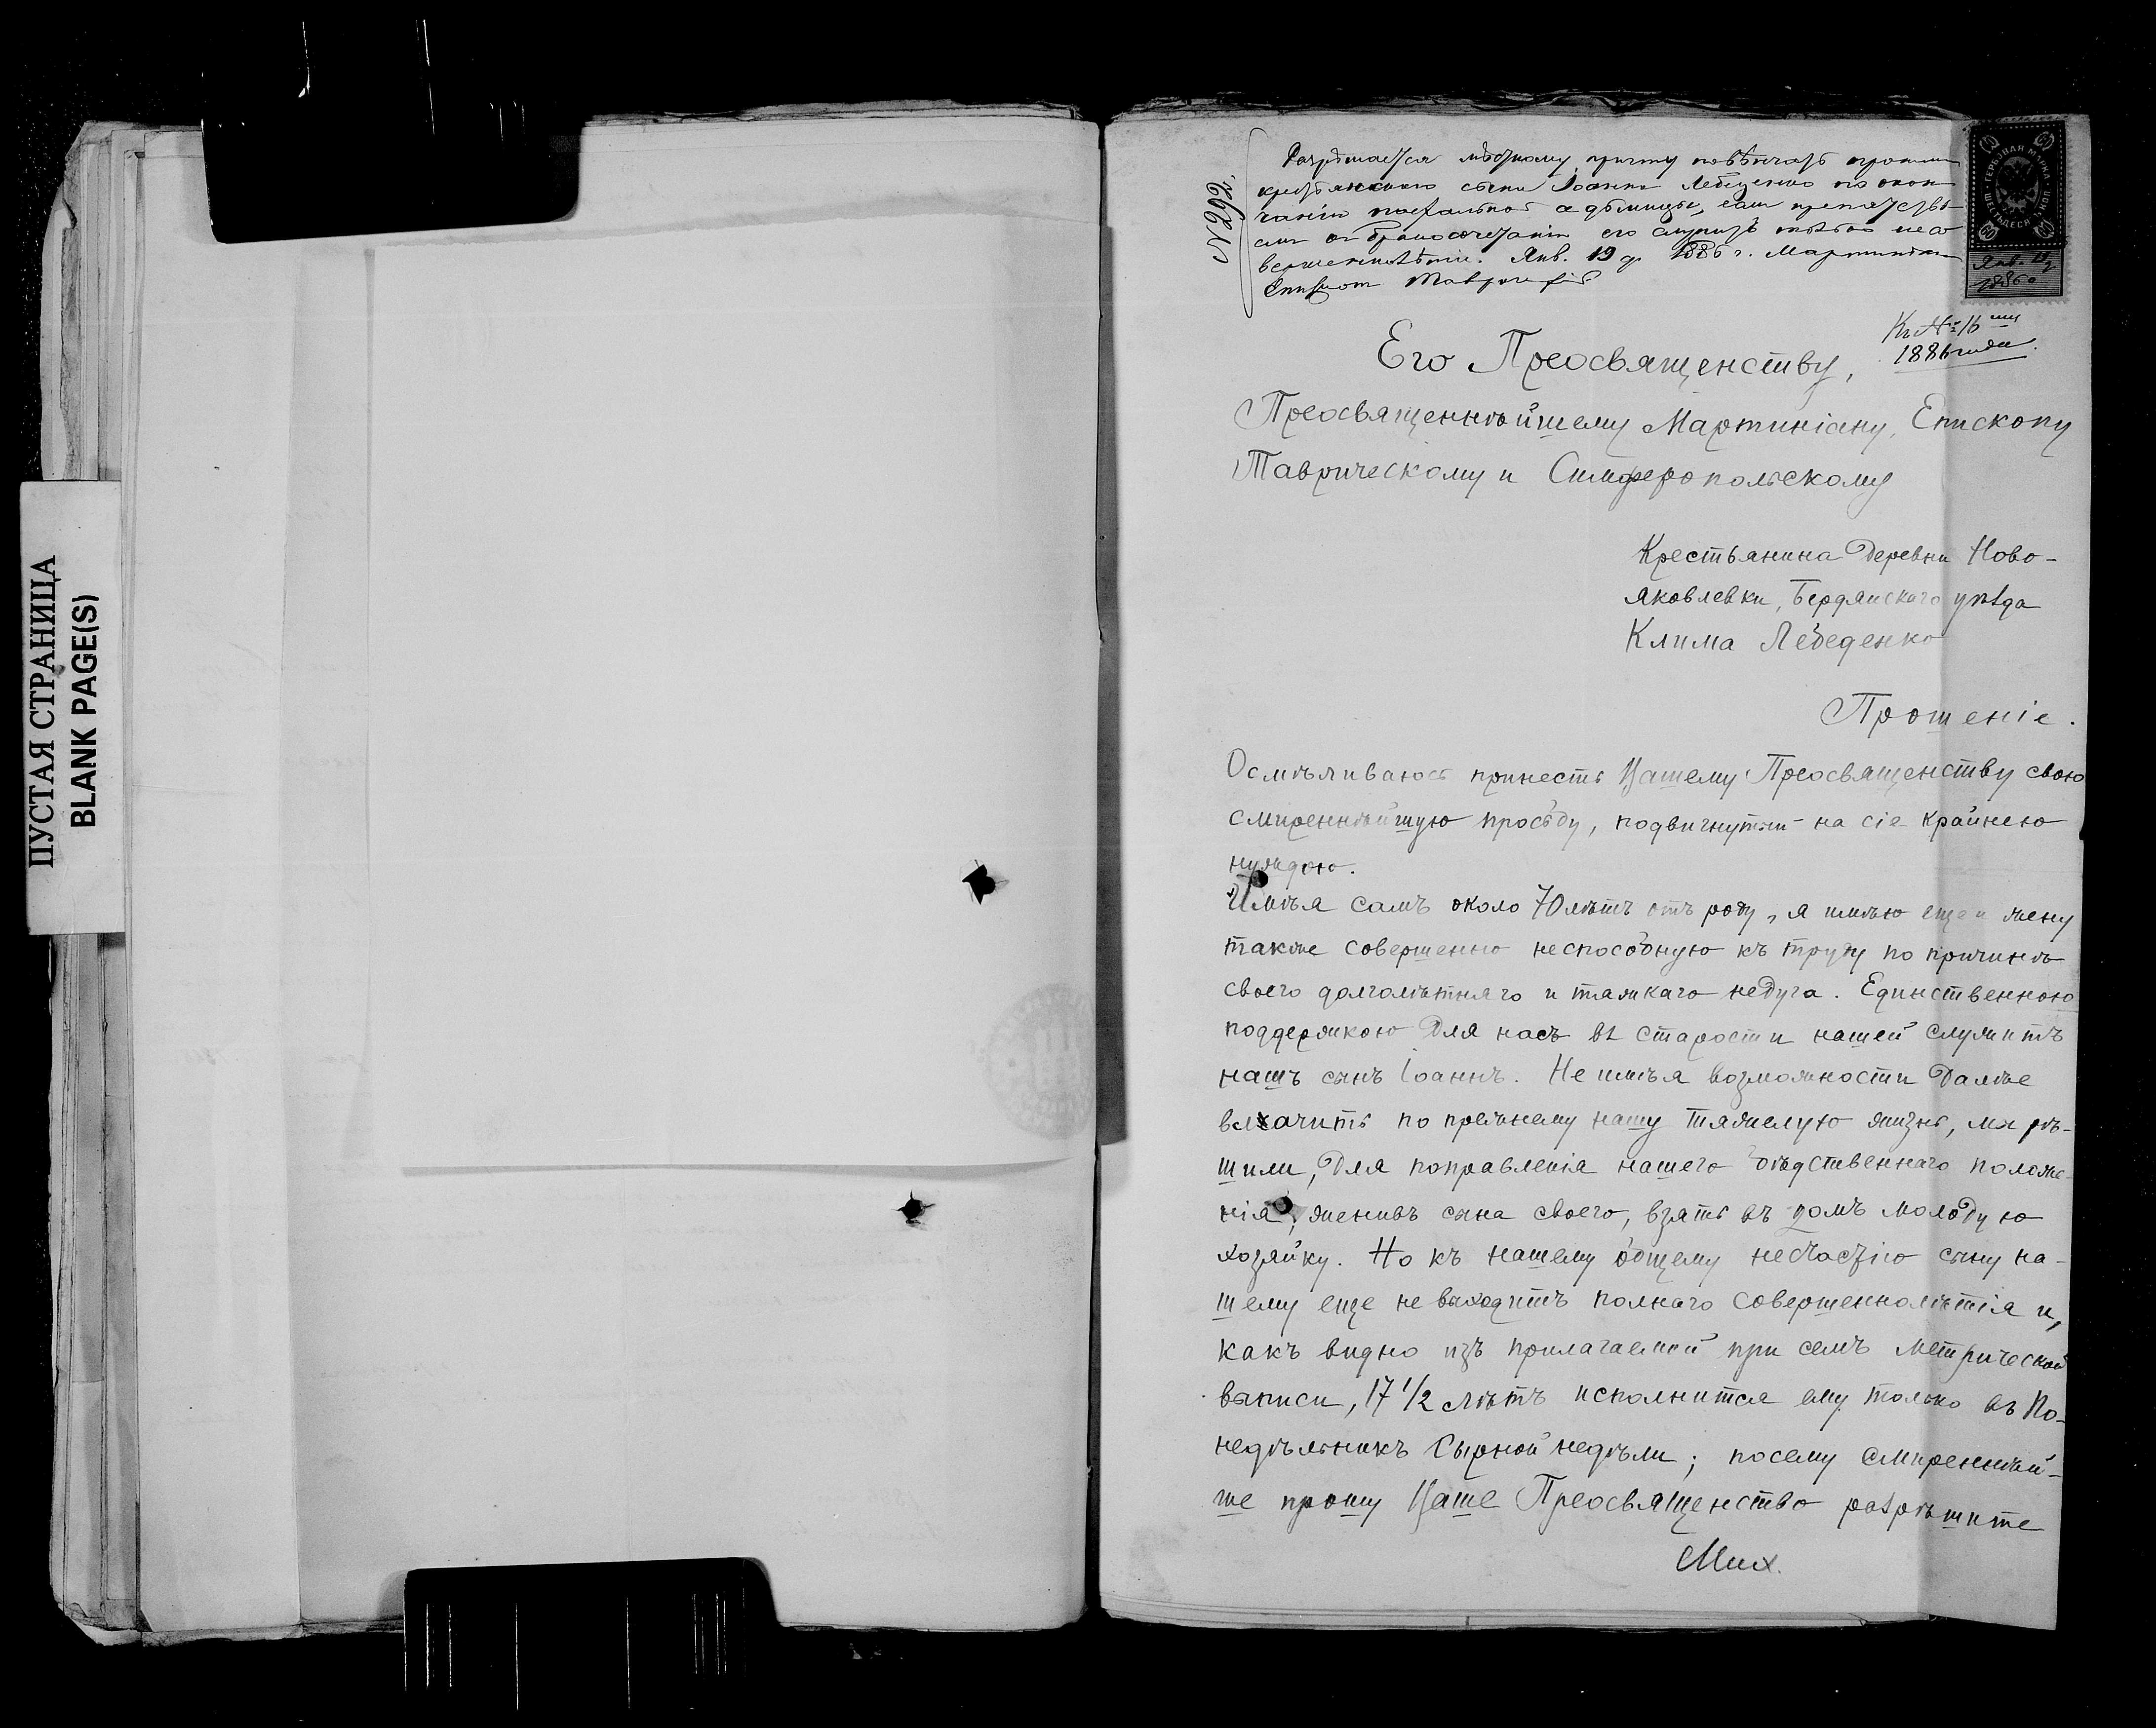 ПУСТАЯ СТРАНИЦА
BLANK PAGE(S)
N 292.
Разрѣшается мѣстному причту повѣнчать
крестьянскаго сына Іоанна Лебеденко по окон-
чаніи пасхальной седьмицы, если препятстві-
емъ къ бракосочетанію его служитъ только несо-
вершеннолѣтіе. Янв. 19 д. 1886 г. Мартиніанъ
Епископъ Таврическій
ГЕРБОВАЯ МАРКА
ШЕСТЬДЕСЯТ КОП.
60
Янв. 19 д.
1886 г.
Къ № 16
1886 года.
Его Преосвященству,
Преосвященнѣйшему Мартиніану, Епископу
Таврическому и Симферопольскому
Крестьянина деревни Ново-
яковлевки, Бердянскаго уѣзда
Клима Лебеденко
Прошеніе.
Осмѣливаюсь принесть Вашему Преосвященству свою
смиреннѣйшую просьбу, подвигнутый на сіе крайнею
нуждою.
Имѣя самъ около 70 лѣтъ отъ роду, я имѣю еще и жену
также совершенно неспособную къ труду по причинѣ
своего долголѣтняго и тяжкаго недуга. Единственною
поддержкою для насъ въ старости нашей служитъ
нашъ сынъ Іоаннъ. Не имѣя возможности далѣе
влачить по прежнему нашу тяжелую жизнь, мы рѣ-
шили, для поправленія нашего бѣдственнаго положе-
нія, женивъ сына своего, взять въ домъ молодую
хозяйку. Но къ нашему общему несчастію сыну на-
шему еще не выходитъ полнаго совершеннолѣтія и,
какъ видно изъ прилагаемой при семъ метрической
выписи, 17 1/2 лѣтъ исполнится ему только въ По-
недѣльникъ Сырной недѣли; посему смиреннѣй-
ше прошу Ваше Преосвященство разрѣшите